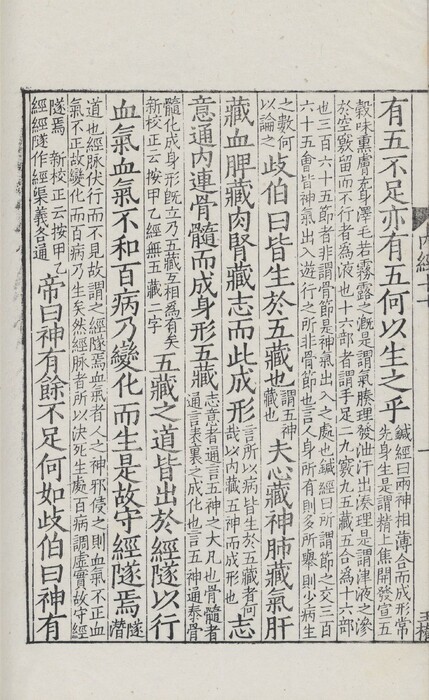 有五不足亦有五何以生之乎
鍼經曰兩神相薄合而成形常
先身生是謂精上焦開發宣五
穀味熏膚充身澤毛若霧露之溉是謂氣腠理發泄汗出湊理是謂津液之滲
於空竅留而不行者為液也十六部者謂手足二九竅九五藏五合為十六部
也三百六十五節者非謂骨節是神氣出入之處也鍼經曰所謂節之交三百
六十五會皆神氣出入遊行之所非骨節也言人身所有則多所舉則少病生
之數何
以論之
歧伯曰皆生於五藏也
謂五神
藏也
夫心藏神肺藏氣肝
藏血脾藏肉腎藏志而此成形
言所以病皆生於五藏者何
哉以内藏五神而成形也
志
意通内連骨髓而成身形五藏
志意者通言五神之大凡也骨髓者
通言表裏之成化也言五神通泰骨
髓化成身形既立乃五藏互相為有矣
新校正云按甲乙經無五藏二字
五藏之道皆出於經隧以行
血氣血氣不和百病乃變化而生是故守經隧焉
隧
潛
道也經脉伏行而不見故謂之經隧焉血氣者人之神邪侵之則血氣不正血
氣不正故變化而百病乃生矣然經脉者所以決死生處百病調虛實故守經
隧焉 新校正云按甲乙
經經隧作經渠義各通
帝曰神有餘不足何如歧伯曰神有